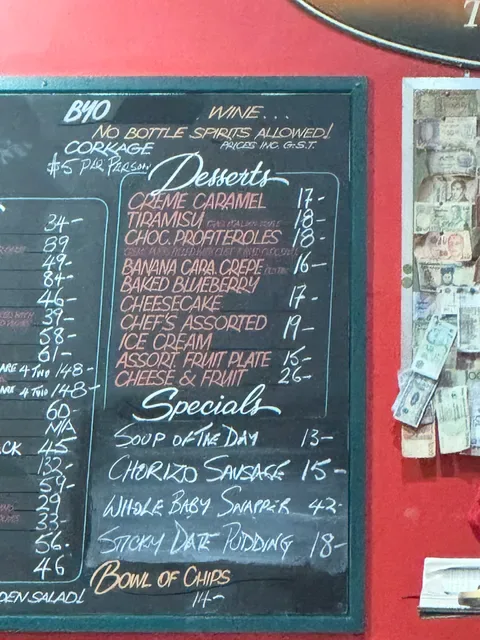 BYO WINE...
NO BOTTLE SPIRITS ALLOWED!
CORKAGE PRICES INC. G.S.T.
$5 PER PERSON
34-
89
49-
84-
46-
39-
58-
61-
ARE 4 TWO 148-
ARE 4 TWO 148-
60-
N/A
CK 45
132-
59-
29
33-
56-
46
DEN SALAD
Desserts
CREME CARAMEL 17-
TIRAMISU 18-
CHOC. PROFITEROLES 18-
BANANA CARA. CREPE 16-
BAKED BLUEBERRY
CHEESECAKE 17-
CHEF'S ASSORTED
ICE CREAM 19-
ASSORT. FRUIT PLATE 15-
CHEESE & FRUIT 26-
Specials
SOUP OF THE DAY 13-
CHORIZO SAUSAGE 15-
WHOLE BABY SNAPPER 42-
STICKY DATE PUDDING 18-
BOWL OF CHIPS
14-